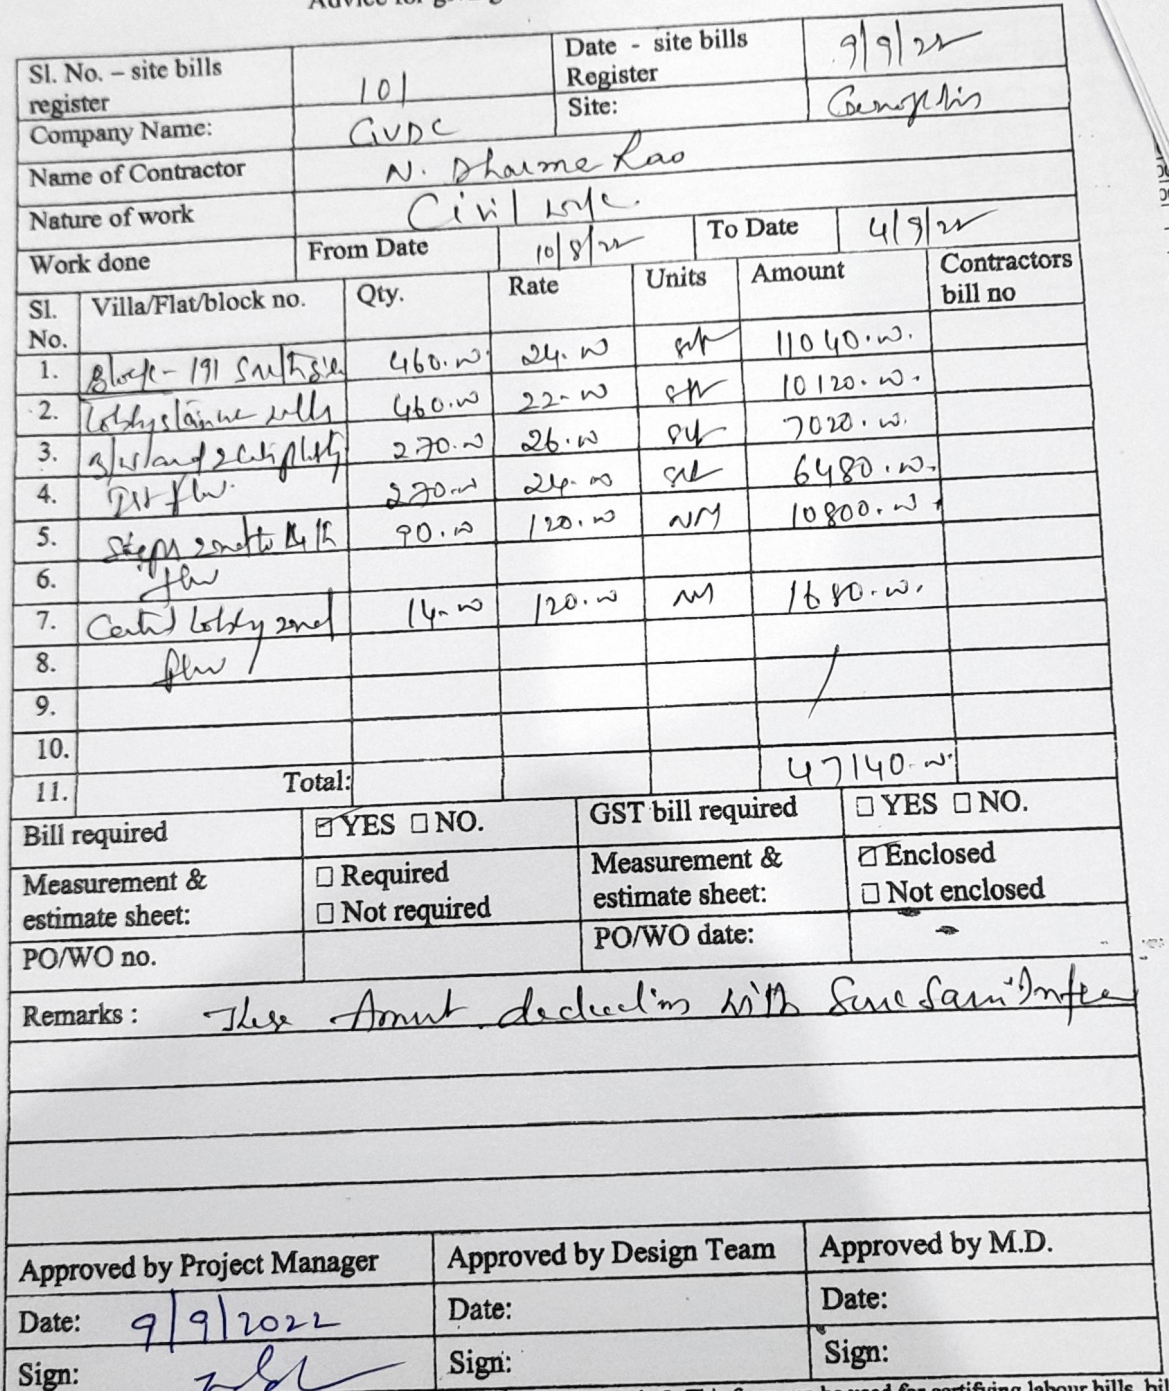 Advice for
Sl. No. – site bills register 101 Date - site bills Register 9/9/22
Company Name: GVDC Site:
Name of Contractor N. Dharma Rao
Nature of work Civil work.
Work done From Date 10/8/22 To Date 4/9/22
Sl. No. Villa/Flat/block no. Qty. Rate Units Amount Contractors bill no
1. Block - 191 460.00 24.00 sft 11040.00.
2. Lobby 460.00 22.00 sft 10120.00.
3. 270.00 26.00 sft 7020.00.
4. 270.00 24.00 sft 6480.00.
5. Steps 2nd to 4th 90.00 120.00 NM 10800.00
6. flw
7. lobby 2nd 14.00 120.00 NM 1680.00.
8. flw /
9.
10.
11. Total: 47140.00
Bill required ☑ YES ☐ NO. GST bill required ☐ YES ☐ NO.
Measurement & estimate sheet: ☐ Required ☐ Not required Measurement & estimate sheet: ☑ Enclosed ☐ Not enclosed
PO/WO no. PO/WO date:
Remarks : These Amount with
Approved by Project Manager Approved by Design Team Approved by M.D.
Date: 9/9/2022 Date: Date:
Sign: Sign: Sign: